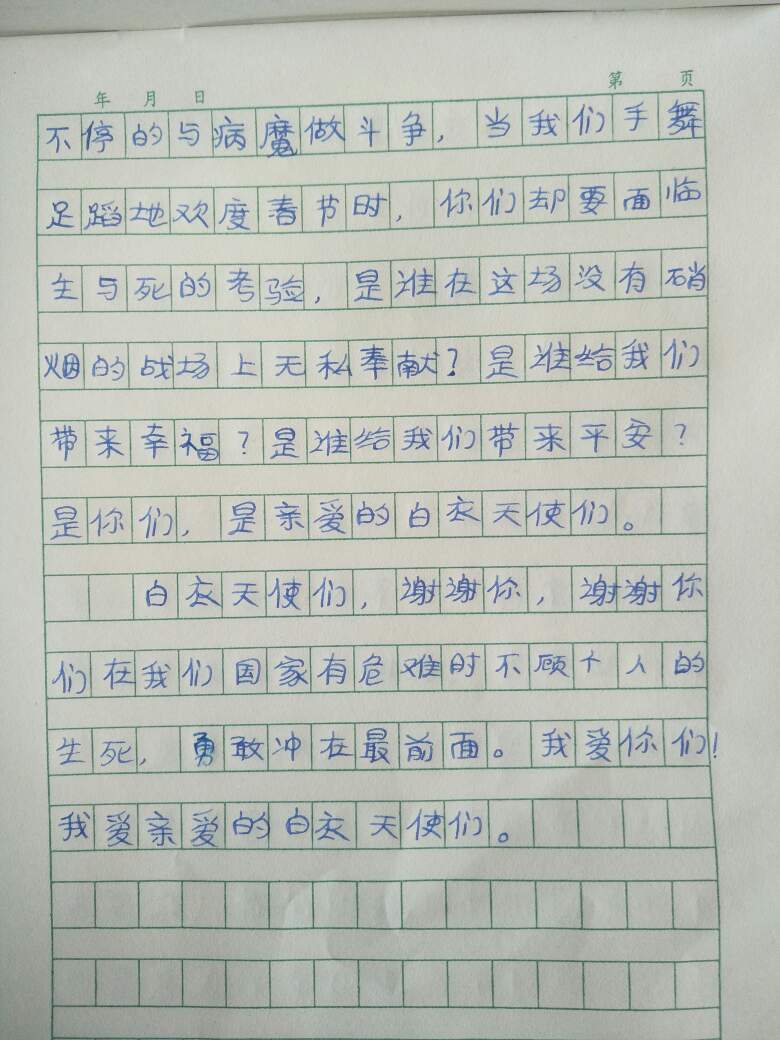 年 月 日 第 页
不停的与病魔做斗争，当我们手舞
足蹈地欢度春节时，你们却要面临
生与死的考验，是谁在这场没有硝
烟的战场上无私奉献？是谁给我们
带来幸福？是谁给我们带来平安？
是你们，是亲爱的白衣天使们。
白衣天使们，谢谢你，谢谢你
们在我们国家有危难时不顾个人的
生死，勇敢冲在最前面。我爱你们！
我爱亲爱的白衣天使们。